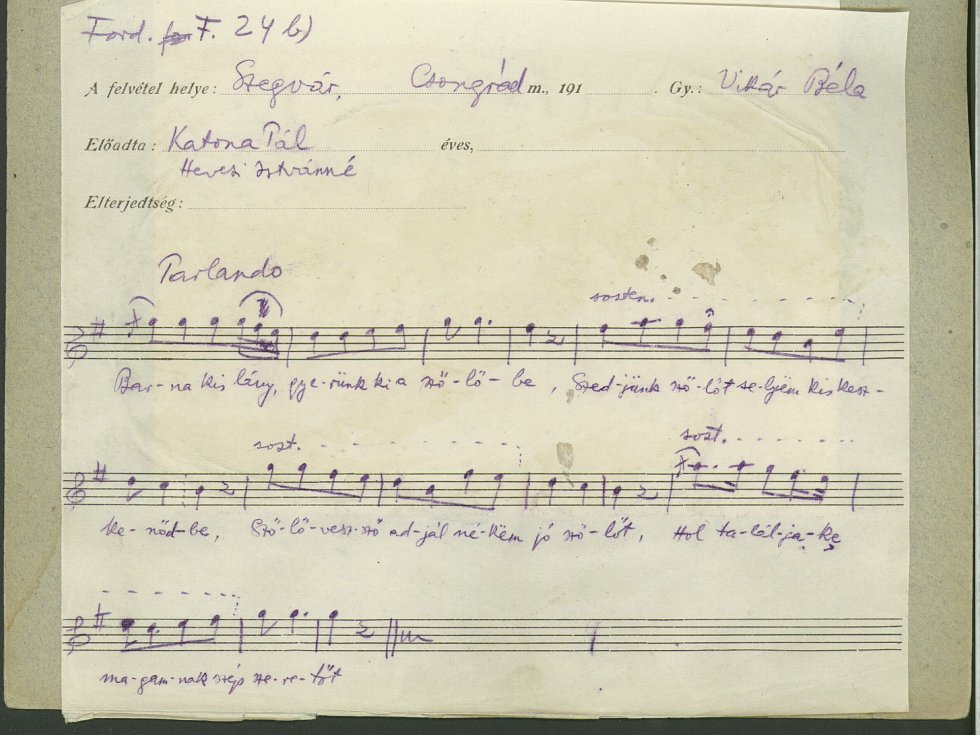 Ford. F. 24 b)
A felvétel helye: Szegvár, Csongrád m., 191 . Gy.: Vikár Béla
Előadta: Katona Pál éves,
Hevesi Istvánné
Elterjedtség:
Parlando
sosten.
Bar-na kis lány, gye-rünk ki a sző-lő-be, Szed-jünk sző-lőt se-lyëm kis kesz-
sost. sost.
ke-nőd-be, Sző-lő-vesz-sző ad-jál né-këm jó sző-lőt, Hol ta-lál-ja-ke
ma-gam-nak szép sze-re-tőt